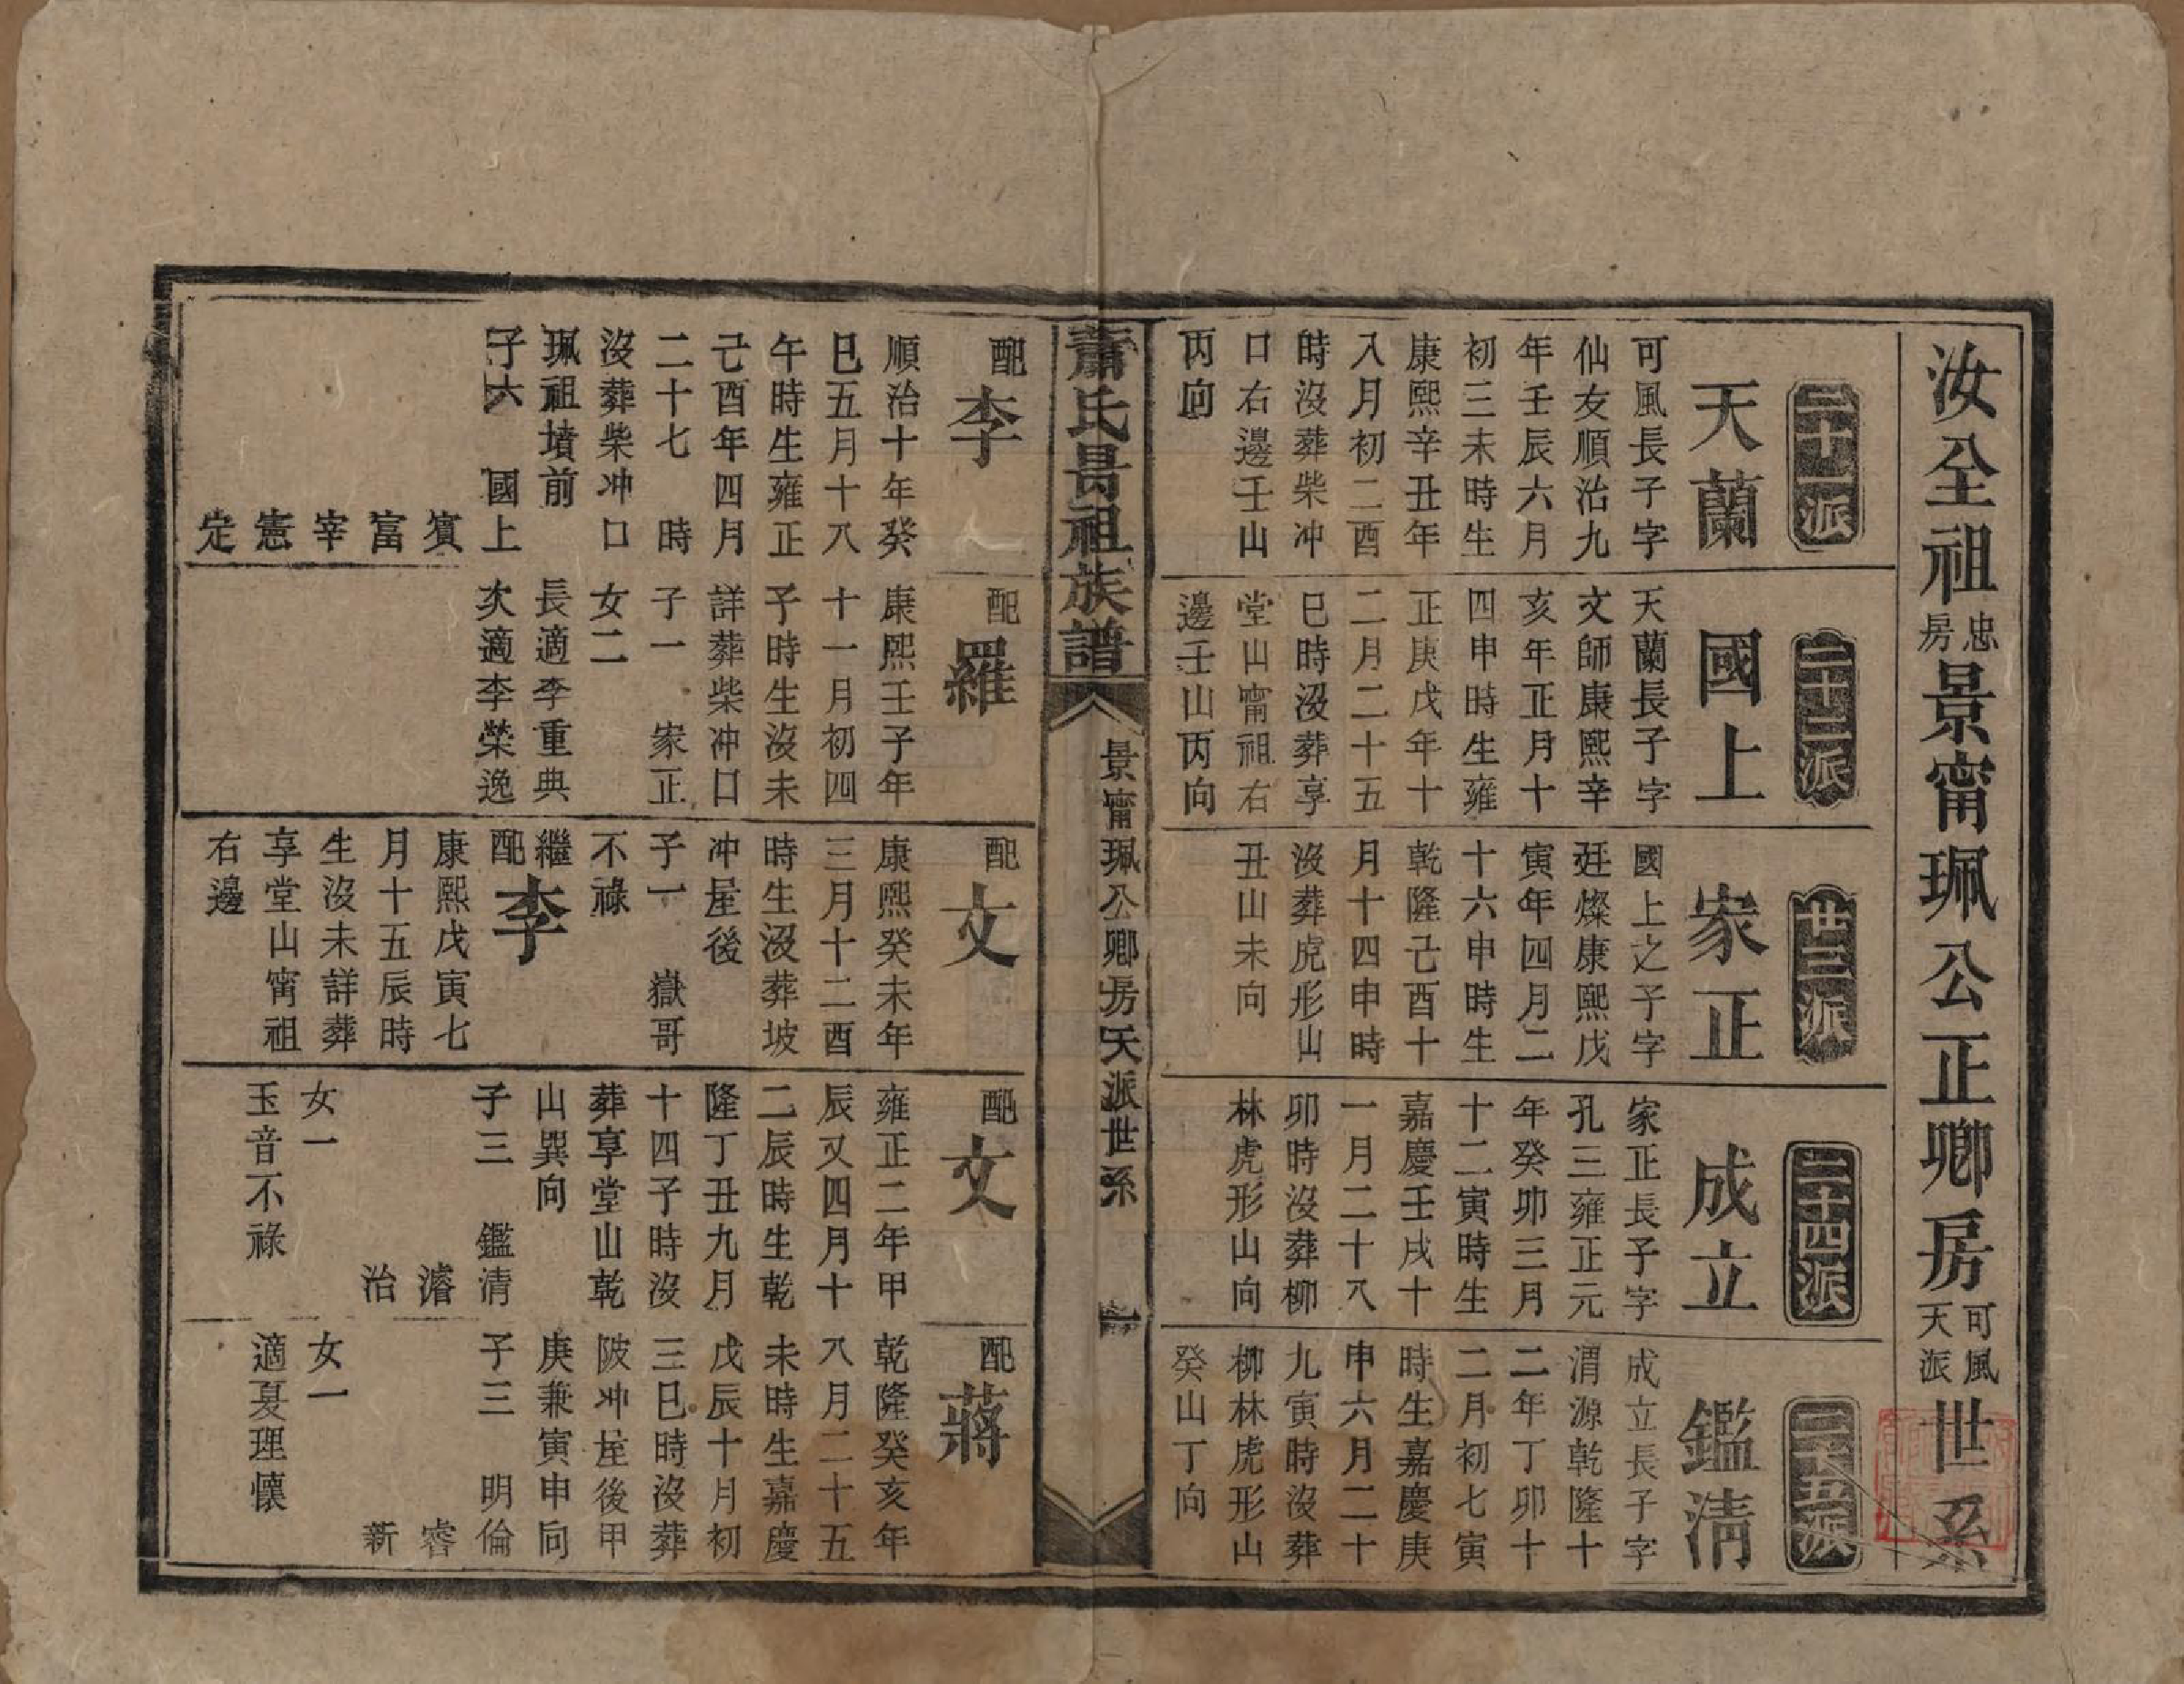 汝全祖忠房景甯珮公正卿房可風天派世系
二十一派
天蘭
可風長子字
仙友順治九
年壬辰六月
初三未時生
康熙辛丑年
八月初二酉
時沒葬柴冲
口右邊壬山
丙向
二十二派
國上
天蘭長子字
文師康熙辛
亥年正月十
四申時生雍
正庚戌年十
二月二十五
巳時沒葬享
堂山甯祖右
邊壬山丙向
廿三派
家正
國上之子字
廷燦康熙戊
寅年四月二
十六申時生
乾隆己酉十
月十四申時
沒葬虎形山
丑山未向
二十四派
成立
家正長子字
孔三雍正元
年癸卯三月
十二寅時生
嘉慶壬戌十
一月二十八
卯時沒葬柳
林虎形山向
二十五派
鑑淸
成立長子字
渭源乾隆十
二年丁卯十
二月初七寅
時生嘉慶庚
申六月二十
九寅時沒葬
柳林虎形山
癸山丁向
蕭氏昺祖族譜
景甯珮公卿房天派世系
一
配李
順治十年癸
巳五月十八
午時生雍正
己酉年四月
二十七 時
沒葬柴冲口
珮祖墳前
子六 國上
賔
富
宰
憲
定
配羅
康熙壬子年
十一月初四
子時生沒未
詳葬柴冲口
子一 家正
女二
長適李重典
次適李榮逸
配文
康熙癸未年
三月十二酉
時生沒葬坡
冲屋後
子一 嶽哥
不祿
繼配李
康熙戊寅七
月十五辰時
生沒未詳葬
享堂山甯祖
右邊
配文
雍正二年甲
辰又四月十
二辰時生乾
隆丁丑九月
十四子時沒
葬享堂山乾
山巽向
子三 鑑清
濬
治
女一
玉音不祿
配蔣
乾隆癸亥年
八月二十五
未時生嘉慶
戊辰十月初
三巳時沒葬
陂冲屋後甲
庚兼寅申向
子三 明倫
睿
新
女一
適夏理懷